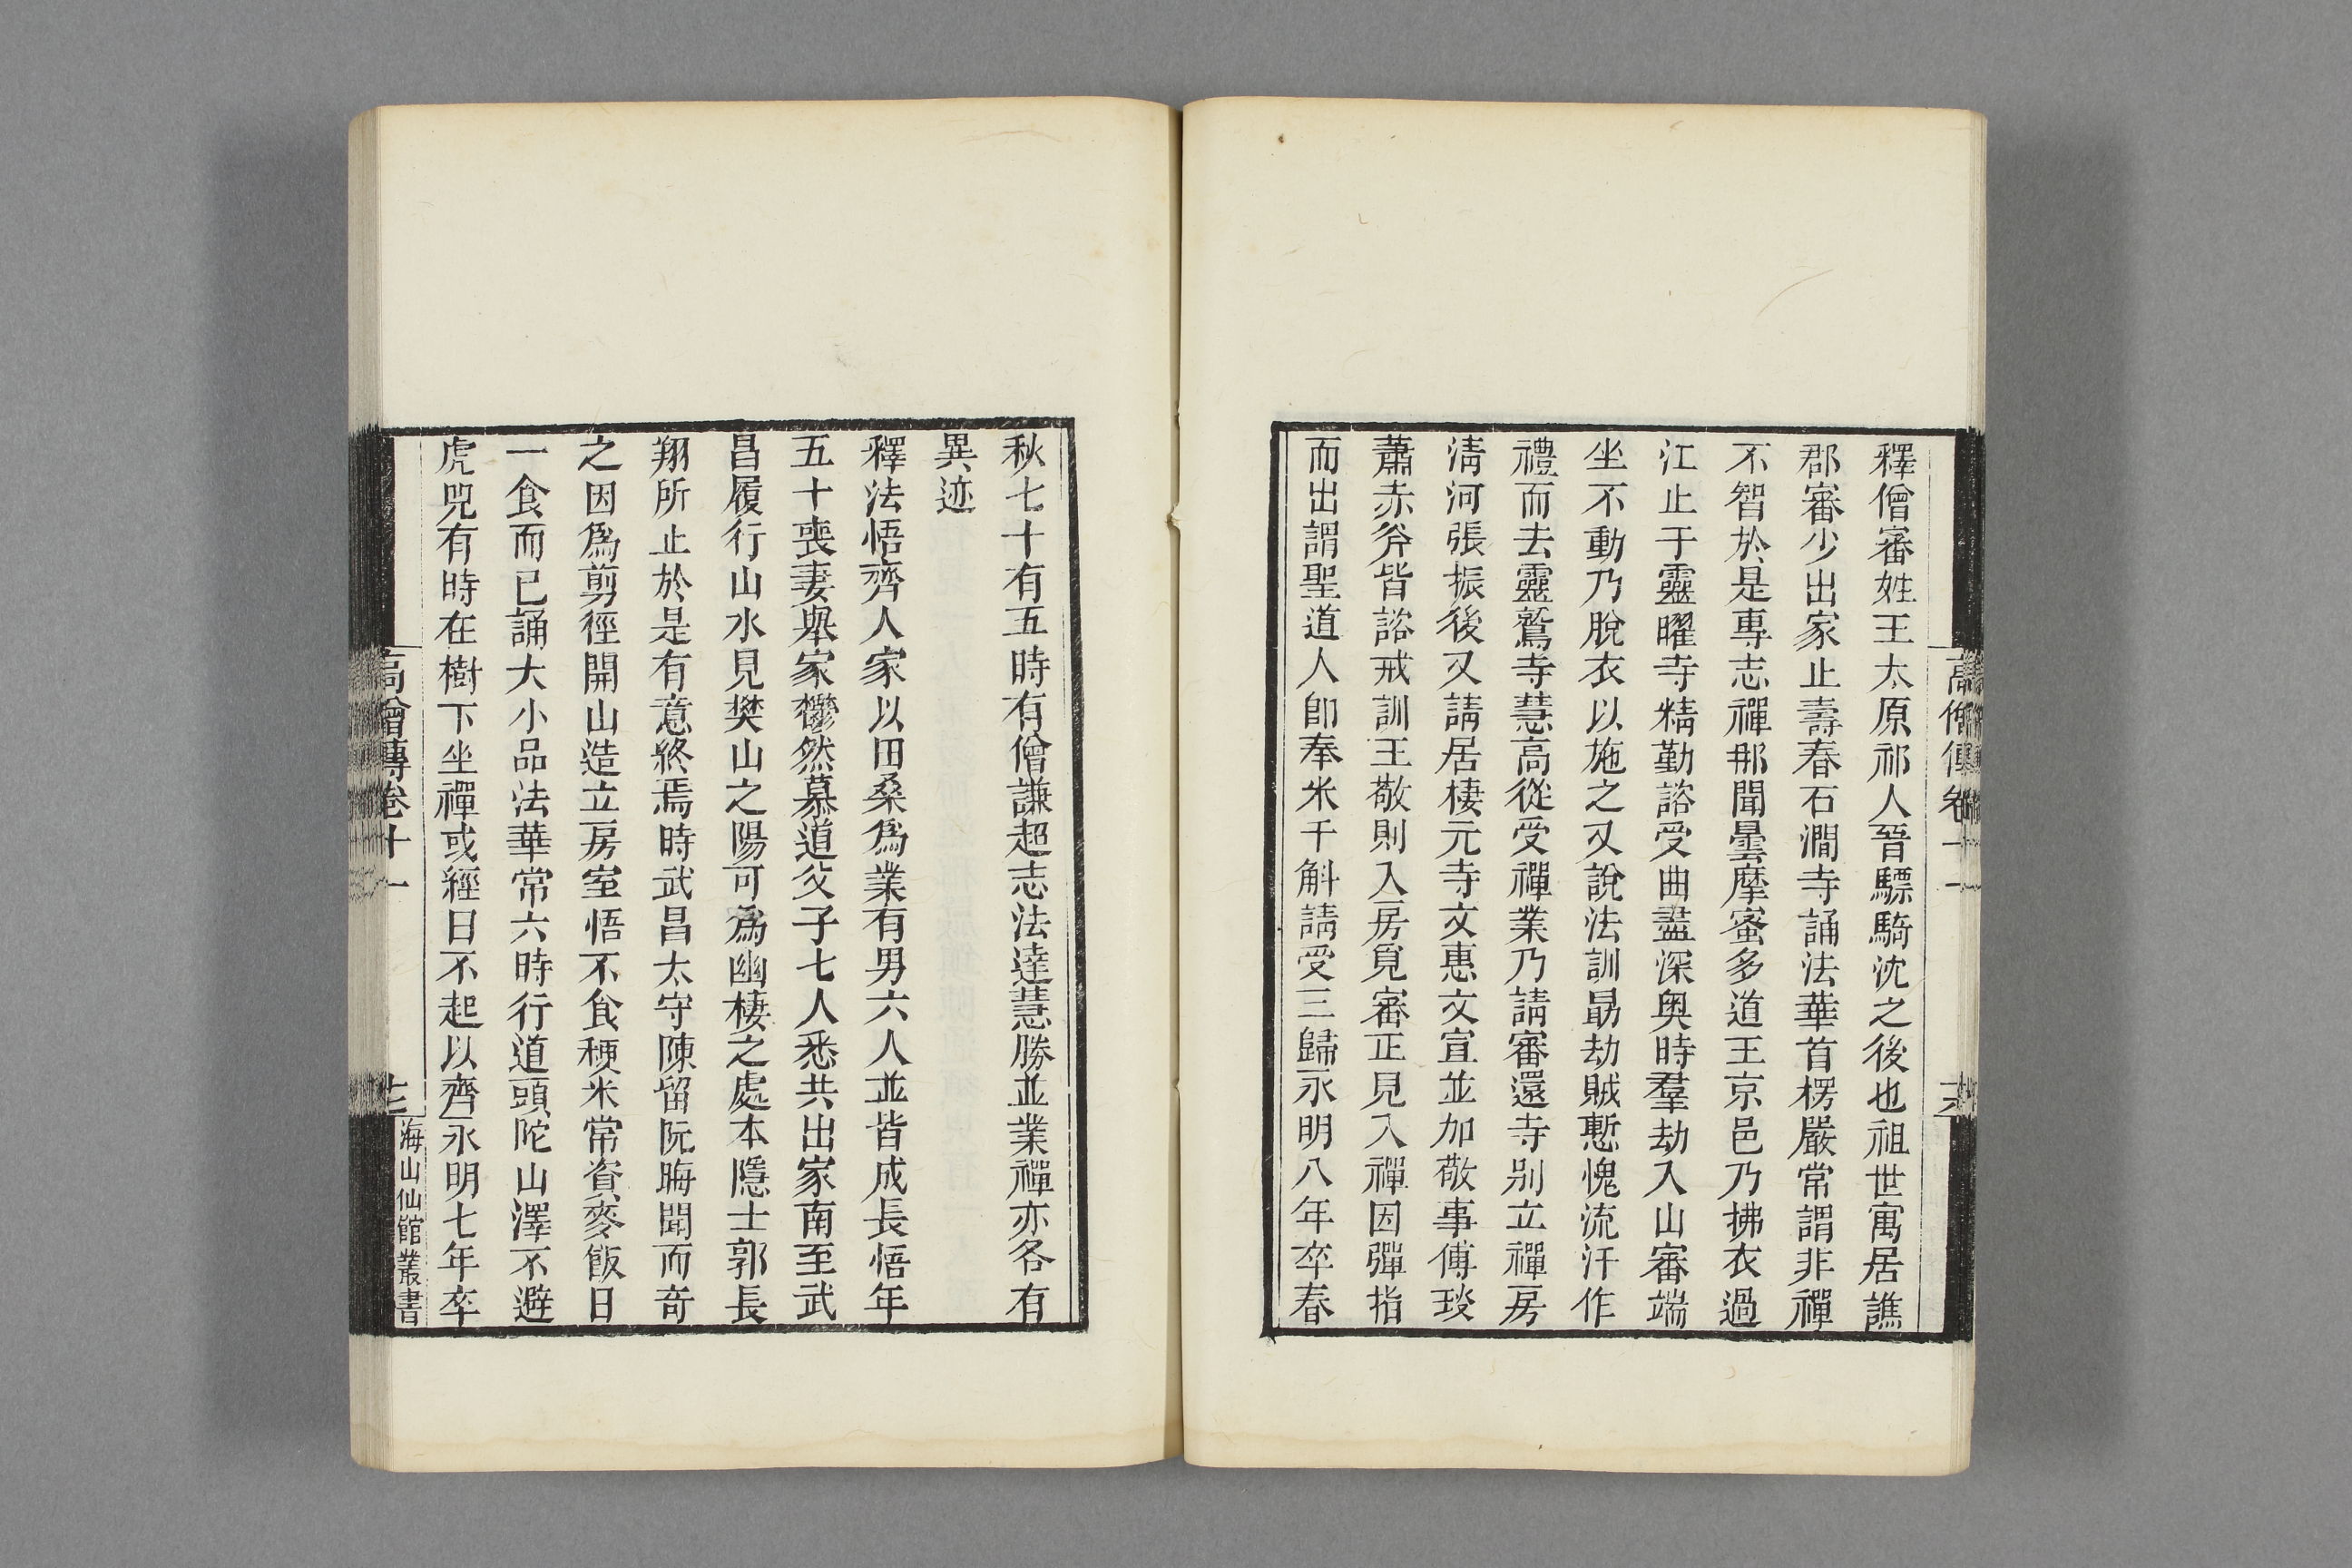 高僧傳卷十一
釋僧審姓王太原祁人晉驃騎沈之後也祖世寓居譙
郡審少出家止壽春石澗寺誦法華首楞嚴常謂非禪
不智於是專志禪那聞曇摩蜜多道王京邑乃拂衣過
江止于靈曜寺精勤諮受曲盡深奧時羣劫入山審端
坐不動乃脫衣以施之又說法訓勗劫賊慙愧流汗作
禮而去靈鷲寺慧高從受禪業乃請審還寺别立禪房
淸河張振後又請居棲元寺文惠文宣並加敬事傅琰
蕭赤斧皆諮戒訓王敬則入房覓審正見入禪因彈指
而出謂聖道人卽奉米千斛請受三歸永明八年卒春
秋七十有五時有僧謙超志法達慧勝並業禪亦各有
異迹
釋法悟齊人家以田桑爲業有男六人並皆成長悟年
五十喪妻舉家鬱然慕道父子七人悉共出家南至武
昌履行山水見樊山之陽可爲幽棲之處本隱士郭長
翔所止於是有意終焉時武昌太守陳留阮晦聞而奇
之因爲剪徑開山造立房室悟不食稉米常資麥飯日
一食而已誦大小品法華常六時行道頭陀山澤不避
虎兕有時在樹下坐禪或經日不起以齊永明七年卒
高僧傳卷十一
海山仙館叢書